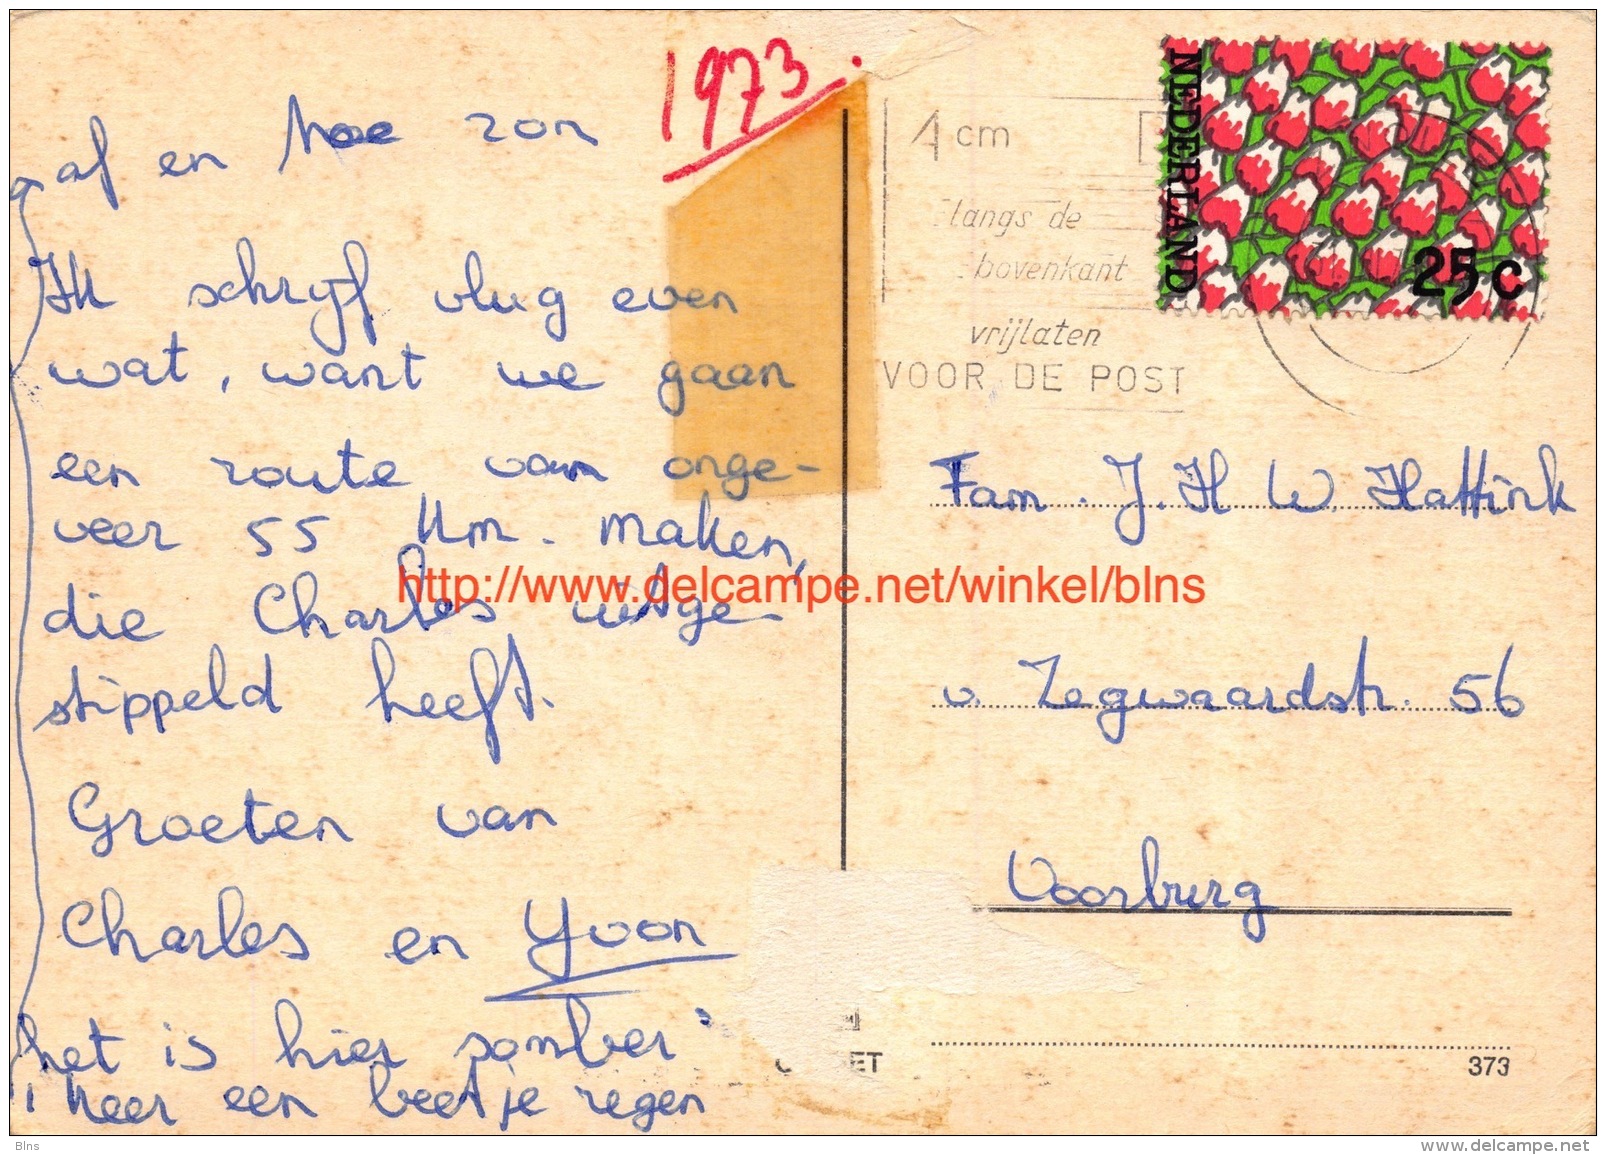 1973.
af en toe zon
Ik schrijf vlug even
wat, want we gaan
een route van onge-
veer 55 km. maken,
die Charles uitge-
stippeld heeft.
Groeten van
Charles en Yvon
het is hier somber
" keer een beetje regen
NEDERLAND
25 c
1 cm
langs de
bovenkant
vrijlaten
VOOR DE POST
Fam. J. H W. Hattink
v. Zegwaardstr. 56
Voorburg
ET
373
http://www.delcampe.net/winkel/blns
Blns
www.delcampe.net